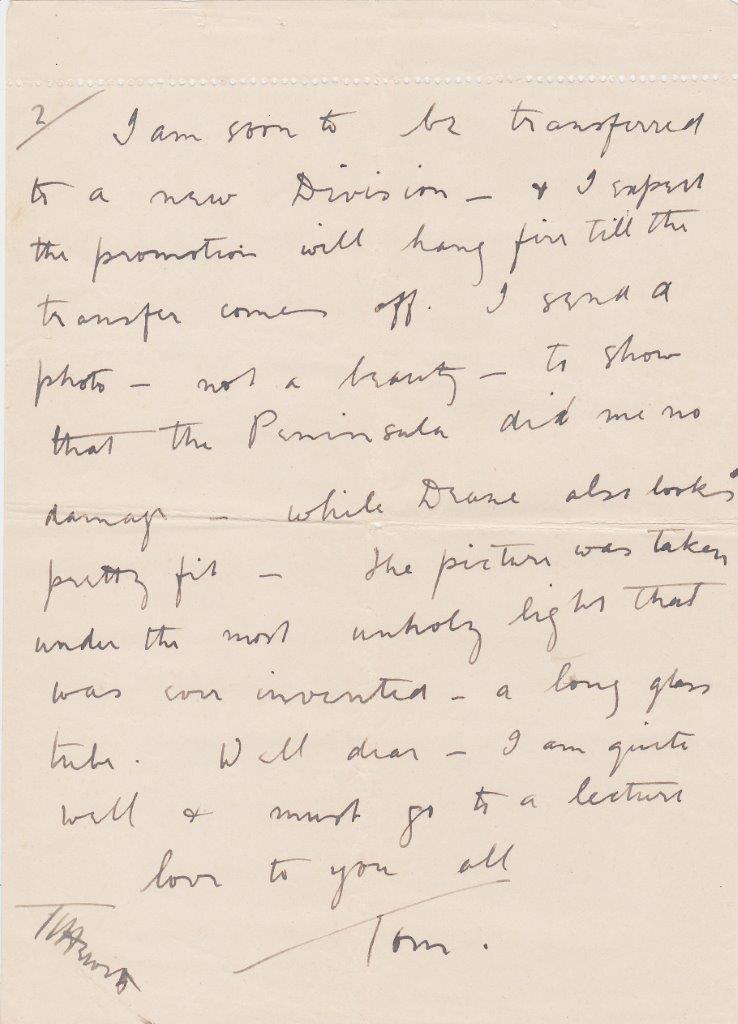 2/ I am soon to be transferred
to a new Division — & I expect
the promotion will hang fire till the
transfer comes off. I send a
photo — not a beauty — to show
that the Peninsula did me no
damage — while Deane also looks
pretty fit — The picture was taken
under the most unholy light that
was ever invented — a long glass
tube. Well dear — I am quite
well & must go to a lecture
love to you all
Tom.